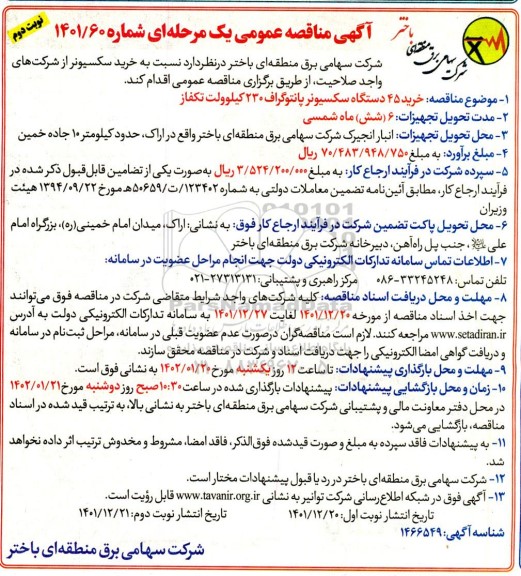 نوبت دوم
آگهی مناقصه عمومی یک مرحله‌ای شماره ۱۴۰۱/۶۰
باختر
شرکت سهامی برق منطقه‌ای
شرکت سهامی برق منطقه‌ای باختر درنظردارد نسبت به خرید سکسیونر از شرکت‌های
واجد صلاحیت، از طریق برگزاری مناقصه عمومی اقدام کند.
۱- موضوع مناقصه: خرید ۴۵ دستگاه سکسیونر پانتوگراف ۲۳۰ کیلوولت تکفاز
۲- مدت تحویل تجهیزات: ۶ (شش) ماه شمسی
۳- محل تحویل تجهیزات: انبار انجیرک شرکت سهامی برق منطقه‌ای باختر واقع در اراک، حدود کیلومتر ۱۰ جاده خمین
۴- مبلغ برآورد: به مبلغ ۷۰/۴۸۳/۹۴۸/۷۵۰ ریال
۵- سپرده شرکت در فرآیند ارجاع کار: به مبلغ ۳/۵۲۴/۲۰۰/۰۰۰ ریال به‌صورت یکی از تضامین قابل‌قبول ذکر شده در
فرآیند ارجاع کار، مطابق آئین‌نامه تضمین معاملات دولتی به شماره ۱۲۳۴۰۲/ت/۵۰۶۵۹ه مورخ ۱۳۹۴/۰۹/۲۲ هیئت
وزیران
۶- محل تحویل پاکت تضمین شرکت در فرآیند ارجاع کار فوق: به نشانی: اراک، میدان امام خمینی(ره)، بزرگراه امام
علی، جنب پل راه‌آهن، دبیرخانه شرکت برق منطقه‌ای باختر
۷- اطلاعات تماس سامانه تدارکات الکترونیکی دولت جهت انجام مراحل عضویت در سامانه:
تلفن تماس: ۳۳۲۴۵۲۴۸-۰۸۶ مرکز راهبری و پشتیبانی: ۲۷۳۱۳۱۳۱-۰۲۱
۸- مهلت و محل دریافت اسناد مناقصه: کلیه شرکت‌های واجد شرایط متقاضی شرکت در مناقصه فوق می‌توانند
جهت اخذ اسناد مناقصه از مورخه ۱۴۰۱/۱۲/۲۰ لغایت ۱۴۰۱/۱۲/۲۷ به سامانه تدارکات الکترونیکی دولت به آدرس
www.setadiran.ir مراجعه کنند. لازم است مناقصه‌گران درصورت عدم عضویت قبلی در سامانه، مراحل ثبت‌نام در سامانه
و دریافت گواهی امضا الکترونیکی را جهت دریافت اسناد و شرکت در مناقصه محقق سازند.
۹- مهلت و محل بارگذاری پیشنهادات: تا ساعت ۱۲ روز یکشنبه مورخ ۱۴۰۲/۰۱/۲۰ به نشانی فوق است.
۱۰- زمان و محل بازگشایی پیشنهادات: پیشنهادات بارگذاری شده در ساعت ۱۰:۳۰ صبح روز دوشنبه مورخ ۱۴۰۲/۰۱/۲۱
در محل دفتر معاونت مالی و پشتیبانی شرکت سهامی برق منطقه‌ای باختر به نشانی بالا، به ترتیب قید شده در اسناد
مناقصه، بازگشایی می‌شود.
۱۱- به پیشنهادات فاقد سپرده به مبلغ و صورت قیدشده فوق‌الذکر، فاقد امضا، مشروط و مخدوش ترتیب اثر داده نخواهد
شد.
۱۲- شرکت سهامی برق منطقه‌ای باختر در رد یا قبول پیشنهادات مختار است.
۱۳- آگهی فوق در شبکه اطلاع‌رسانی شرکت توانیر به نشانی www.tavanir.org.ir قابل رؤیت است.
تاریخ انتشار نوبت اول: ۱۴۰۱/۱۲/۲۰ تاریخ انتشار نوبت دوم: ۱۴۰۱/۱۲/۲۱
شناسه آگهی: ۱۴۶۶۵۴۹
شرکت سهامی برق منطقه‌ای باختر